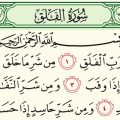 سُورَةُ الْفَلَقِ
بِسْمِ اللَّهِ الرَّحْمَٰنِ الرَّحِيمِ
بِرَبِّ الْفَلَقِ ١ مِن شَرِّ مَا خَلَقَ
إِذَا وَقَبَ ٣ وَمِن شَرِّ النَّفَّـ
٤ وَمِن شَرِّ حَاسِدٍ إِذَا حَسَدَ